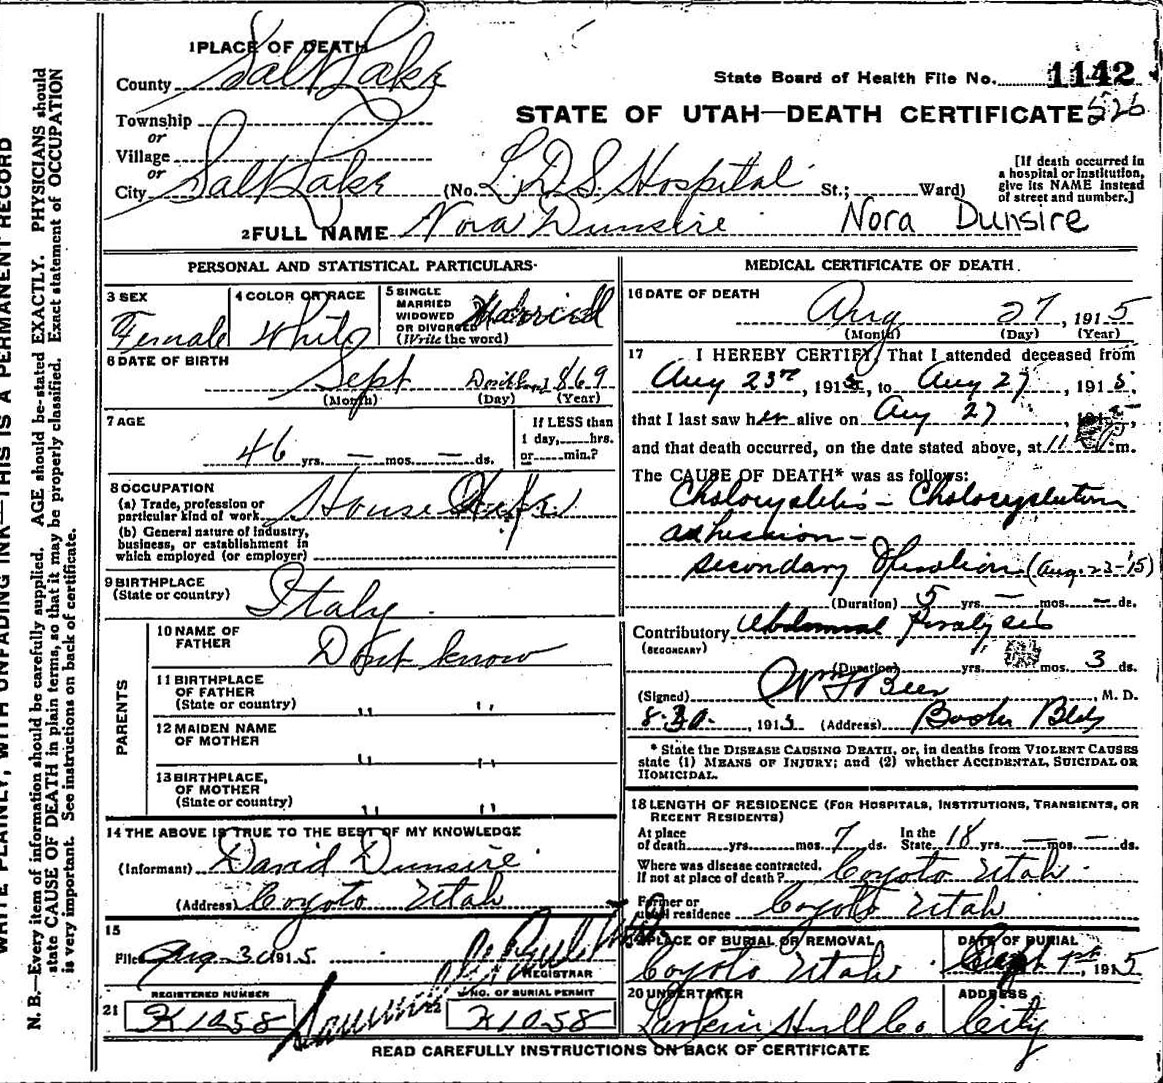 WRITE PLAINLY, WITH UNFADING INK—THIS IS A PERMANENT RECORD
N. B.—Every item of information should be carefully supplied. AGE should be stated EXACTLY. PHYSICIANS should
state CAUSE OF DEATH in plain terms, so that it may be properly classified. Exact statement of OCCUPATION
is very important. See instructions on back of certificate.
1 PLACE OF DEATH
County Salt Lake
State Board of Health File No. 1142
STATE OF UTAH—DEATH CERTIFICATE 526
Township
or
Village
or
City Salt Lake (No. L.D.S. Hospital St.; Ward)
[If death occurred in
a hospital or institution,
give its NAME instead
of street and number.]
2 FULL NAME Nora Dunsire Nora Dunsire
PERSONAL AND STATISTICAL PARTICULARS
3 SEX
Female
4 COLOR OR RACE
White
5 SINGLE
MARRIED
WIDOWED
OR DIVORCED
(Write the word)
Married
6 DATE OF BIRTH
Sept Dont know 1869
(Month) (Day) (Year)
7 AGE
46 yrs. — mos. — ds.
If LESS than
1 day, hrs.
or min.?
8 OCCUPATION
(a) Trade, profession or
particular kind of work House Wife
(b) General nature of industry,
business, or establishment in
which employed (or employer)
9 BIRTHPLACE
(State or country) Italy
PARENTS
10 NAME OF
FATHER Dont know
11 BIRTHPLACE
OF FATHER
(State or country) " "
12 MAIDEN NAME
OF MOTHER " "
13 BIRTHPLACE,
OF MOTHER
(State or country) " "
14 THE ABOVE IS TRUE TO THE BEST OF MY KNOWLEDGE
(Informant) David Dunsire
(Address) Coyoto Utah
15
Filed Aug 30 1915.
REGISTRAR
21 REGISTERED NUMBER
K1058
22 NO. OF BURIAL PERMIT
K1058
MEDICAL CERTIFICATE OF DEATH
16 DATE OF DEATH
Aug 27, 1915
(Month) (Day) (Year)
17 I HEREBY CERTIFY, That I attended deceased from
Aug 23rd, 1915, to Aug 27, 1915,
that I last saw her alive on Aug 27, 1915,
and that death occurred, on the date stated above, at 11 m.
The CAUSE OF DEATH* was as follows:
adhesion —
secondary Operation (Aug-23-'15)
(Duration) 5 yrs. — mos. — ds.
Contributory Abdominal Paralysis
(SECONDARY)
(Duration) yrs. mos. 3 ds.
(Signed) Beer, M. D.
8-30, 1915 (Address) Bldg
* State the DISEASE CAUSING DEATH, or, in deaths from VIOLENT CAUSES
state (1) MEANS OF INJURY; and (2) whether ACCIDENTAL, SUICIDAL OR
HOMICIDAL.
18 LENGTH OF RESIDENCE (FOR HOSPITALS, INSTITUTIONS, TRANSIENTS, OR
RECENT RESIDENTS)
At place
of death yrs. mos. 7 ds.
In the
State 18 yrs. — mos. — ds.
Where was disease contracted,
If not at place of death? Coyoto Utah
Former or
usual residence Coyoto Utah
19 PLACE OF BURIAL OR REMOVAL
Coyoto Utah
DATE OF BURIAL
Sept 1st, 1915
20 UNDERTAKER
Larkin Hull Co
ADDRESS
City
READ CAREFULLY INSTRUCTIONS ON BACK OF CERTIFICATE